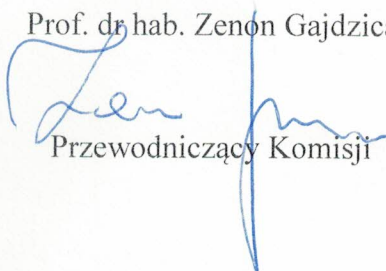 Prof. dr hab. Zenon Gajdzica
Przewodniczący Komisji